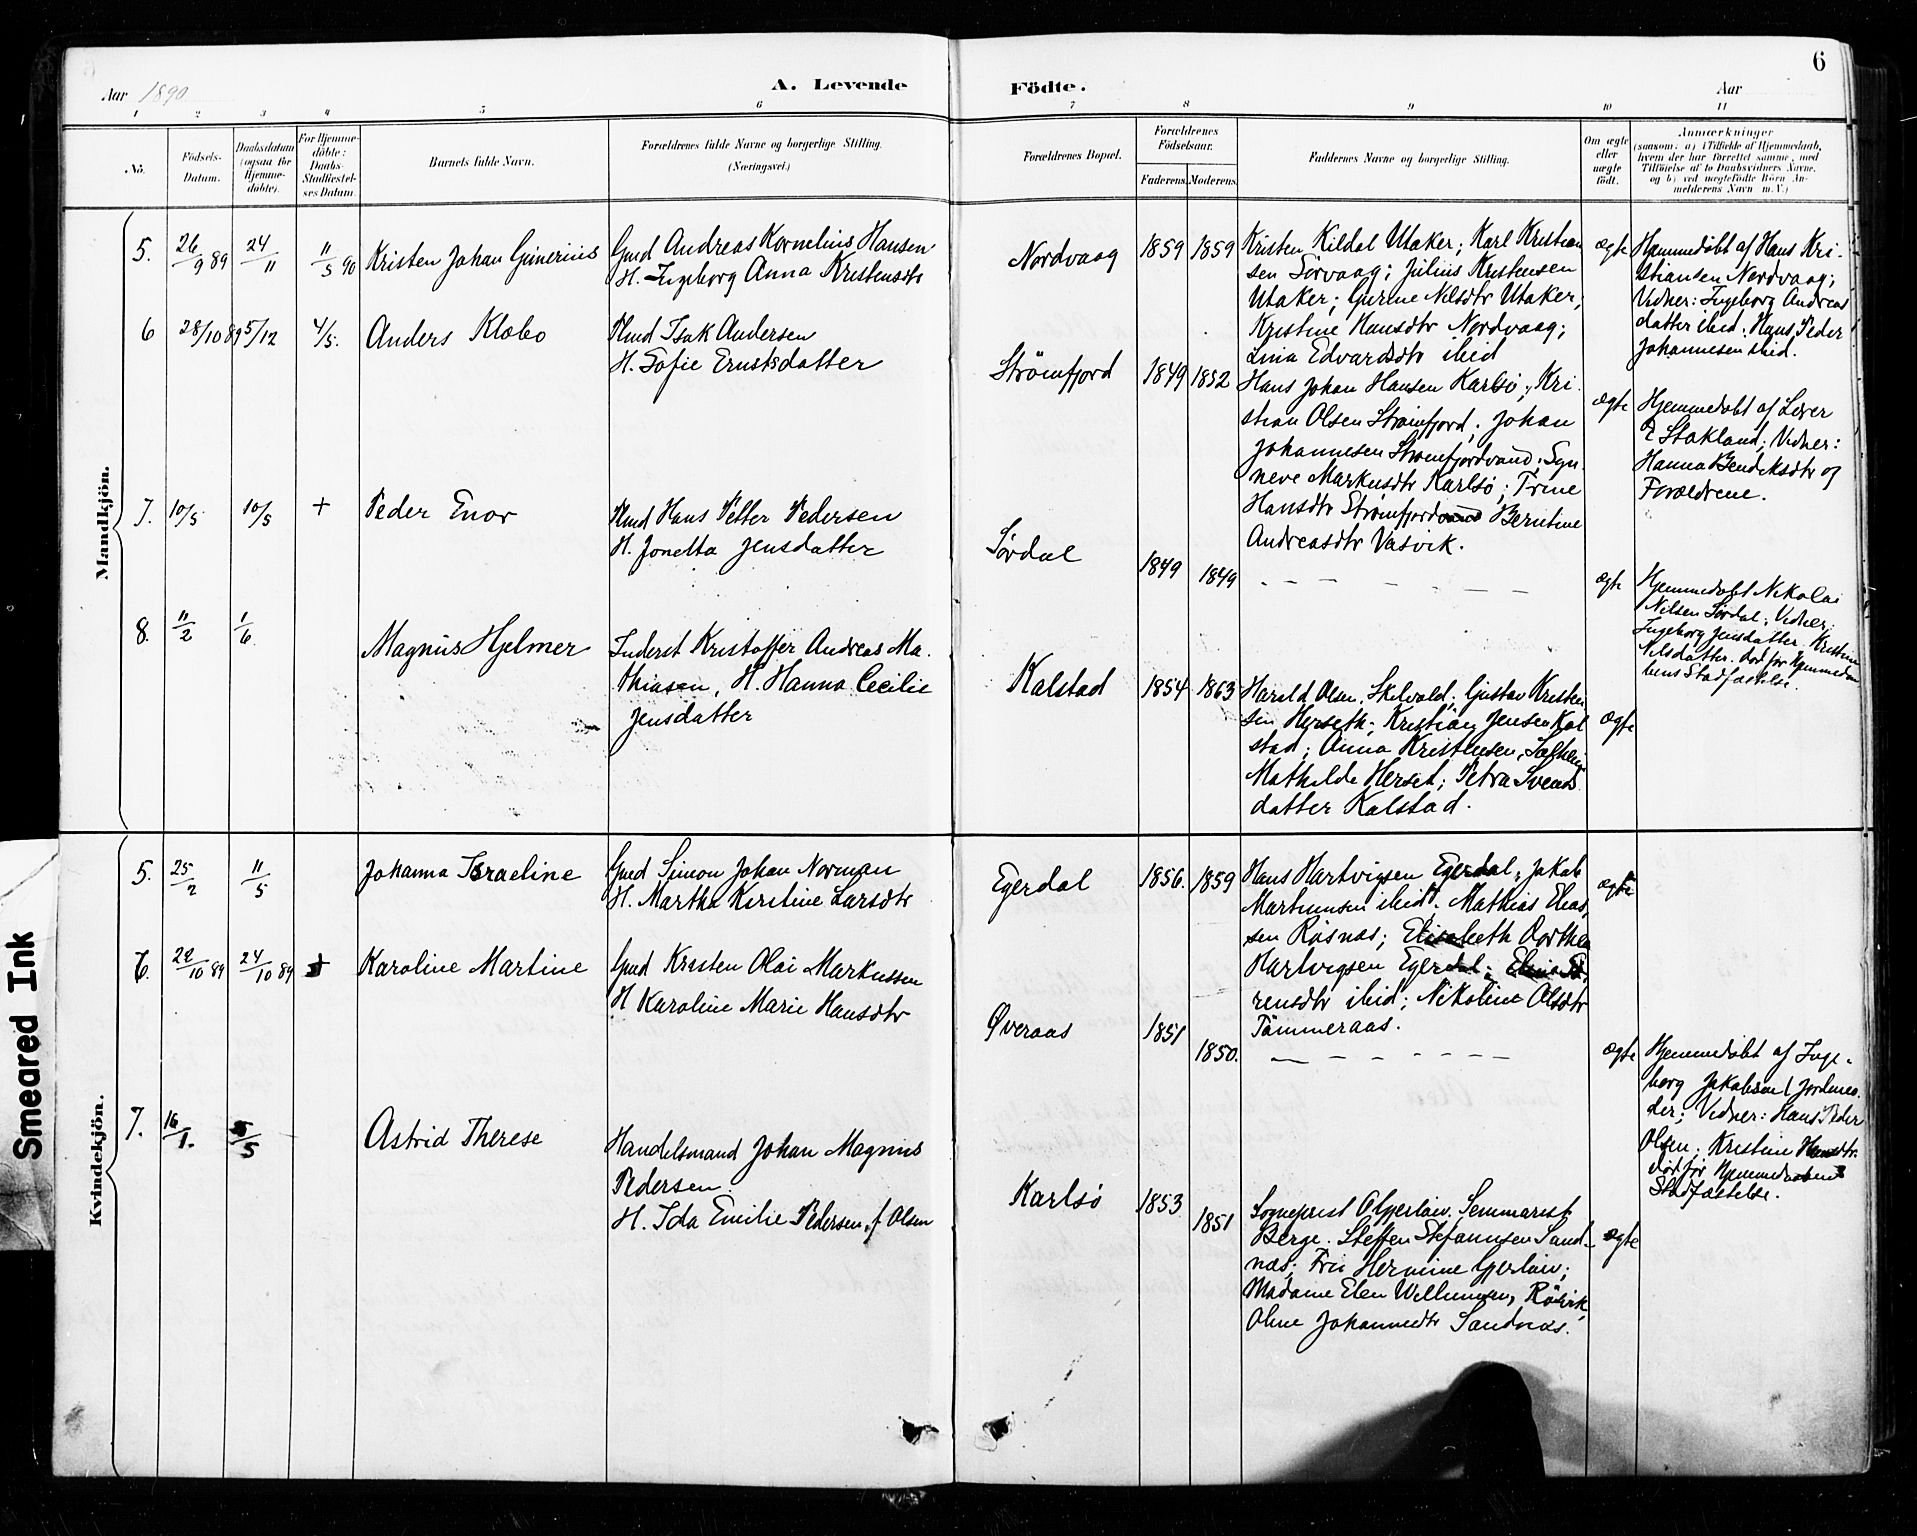 6
Aar 1890
A. Levende
Födte.
Aar
1 2 3 4 5 6 7 8 9 10 11
No.
Födsels-
Datum.
Daabsdatum
(ogsaa for
Hjemme-
döbte).
For Hjemme-
döbte:
Daabs-
Stadfæstel-
ses Datum.
Barnets fulde Navn.
Forældrenes fulde Navne og borgerlige Stilling.
(Næringsvei.)
Forældrenes Bopæl.
Forældrenes
Födselsaar.
Faderens.
Moderens.
Faddernes Navne og borgerlige Stilling.
Om ægte
eller
uægte
födt.
Anmærkninger
(saasom: a) i Tilfælde af Hjemmedaab,
hvem der har forrettet samme, med
Tilföielse af to Daabsvidners Navne,
og b) ved uægtefödte Börn An-
melderens Navn m. V.)
Mandkjön.
5.
26/9 89
24/11
11/5 90
Kristen Johan Gunerius
Gmd Andreas Kornelius Hansen
H. Ingeborg Anna Kristensdtr
Nordvaag
1859
1859
Kristen Kildal Utaker; Karl Kristian
sen Sörvaag; Julius Kristensen
Utaker; Gurine Nilsdtr Utaker;
Kristine Hansdtr Nordvaag;
Lina Edvardsdtr ibid
ægte
Hjemmedöbt af Hans Kri-
stiansen Nordvaag;
Vidner: Ingeborg Andreas
datter ibid; Hans Peder
Johannesen ibid.
6
28/10 89
5/12
4/5.
Anders Klæbo
Pmd Isak Andersen
H. Sofie Ernstsdatter
Strömfjord
1849
1852
Hans Johan Hansen Karlsö; Kri
stian Olsen Strömfjord; Johan
Johannesen Strömfjordvand; Syn
neve Markusdtr Karlsö; Trine
Hansdtr Strömfjord Berntine
Andreasdtr Vasvik.
ægte
Hjemmedöbt af Lærer
Stakland; Vidner:
Hanna Bendiksdtr og
Forældrene.
7.
10/5
10/5
+
Peder Enor
Pmd Hans Petter Pedersen
H. Jonetta Jensdatter
Sördal
1849
1849
- - - - - -
ægte
Hjemmedöbt Nikolai
Nilsen Sördal; Vidner:
Ingeborg Jensdatter Kristine
Nilsdatter. död for Hjemmedaa
bens Stadfæstelse.
8.
11/2
1/6.
Magnus Hjelmer
Inderst Kristoffer Andreas Ma-
thiasen, H. Hanna Cecilie
Jensdatter
Kalstad
1854
1863
Harald Olsen Skilvold; Gustav Kristen
sen Herseth; Kristian Jensen Kal
stad; Anna Kristensen,
Mathilde Herset; Petra Svends
datter Kalstad.
ægte
Kvindekjön.
5.
25/2
11/5
Johanna Israeline
Gmd Simon Johan Norman
H. Martha Kirstine Larsdtr
Egerdal
1856.
1859
Hans Hartvigsen Egerdal; Jakob
Martinusen ibid. Mathias Elias
sen Rösnæs; Elisabeth Dorthea
Hartvigsen Egerdal;
rensdtr ibid; Nikoline Olsdtr
Tömmeraas.
ægte
6.
22/10 89
24/10 89
+
Karoline Martine
Gmd Kristen Olai Markussen
H Karoline Marie Hansdtr
Øveraas
1851
1850.
- - - - - - - -
ægte
Hjemmedöbt af Inge-
borg Jakobsen (Jordemo-
der; Vidner: Hans Peder
Olsen, Kristine Hansdtr
död för Hjemmedaabens
Stadfæstelse.
7.
16/1.
5/5
Astrid Therese
Handelsmand Johan Magnus
Pedersen.
H. Ida Emilie Pedersen, f. Olsen
Karlsö
1853
1851
Sogneprest O Gjerløw. Seminarist
Berge. Steffen Stefanusen Sand-
næs; Fru Hermine Gjerløw;
Madame Elen Willumsen, Rösvik,
Oline Johannesdtr Sandnæs.
ægte
Smeared Ink